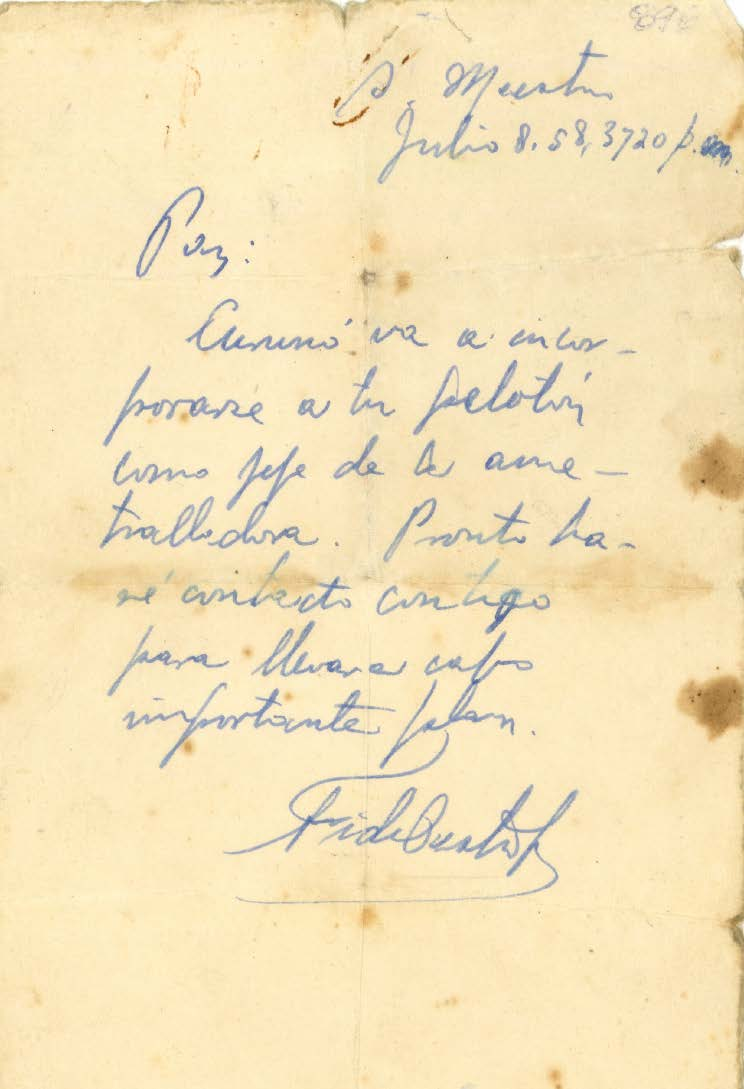 S. Maestra
Julio 8. 58, 3 y 20 p.m.
Paz:
Curuné va a incor-
porarse a tu pelotón
como jefe de la ame-
tralladora. Pronto ha-
ré contacto contigo
para llevar a cabo
importante plan.
Fidel Castro R